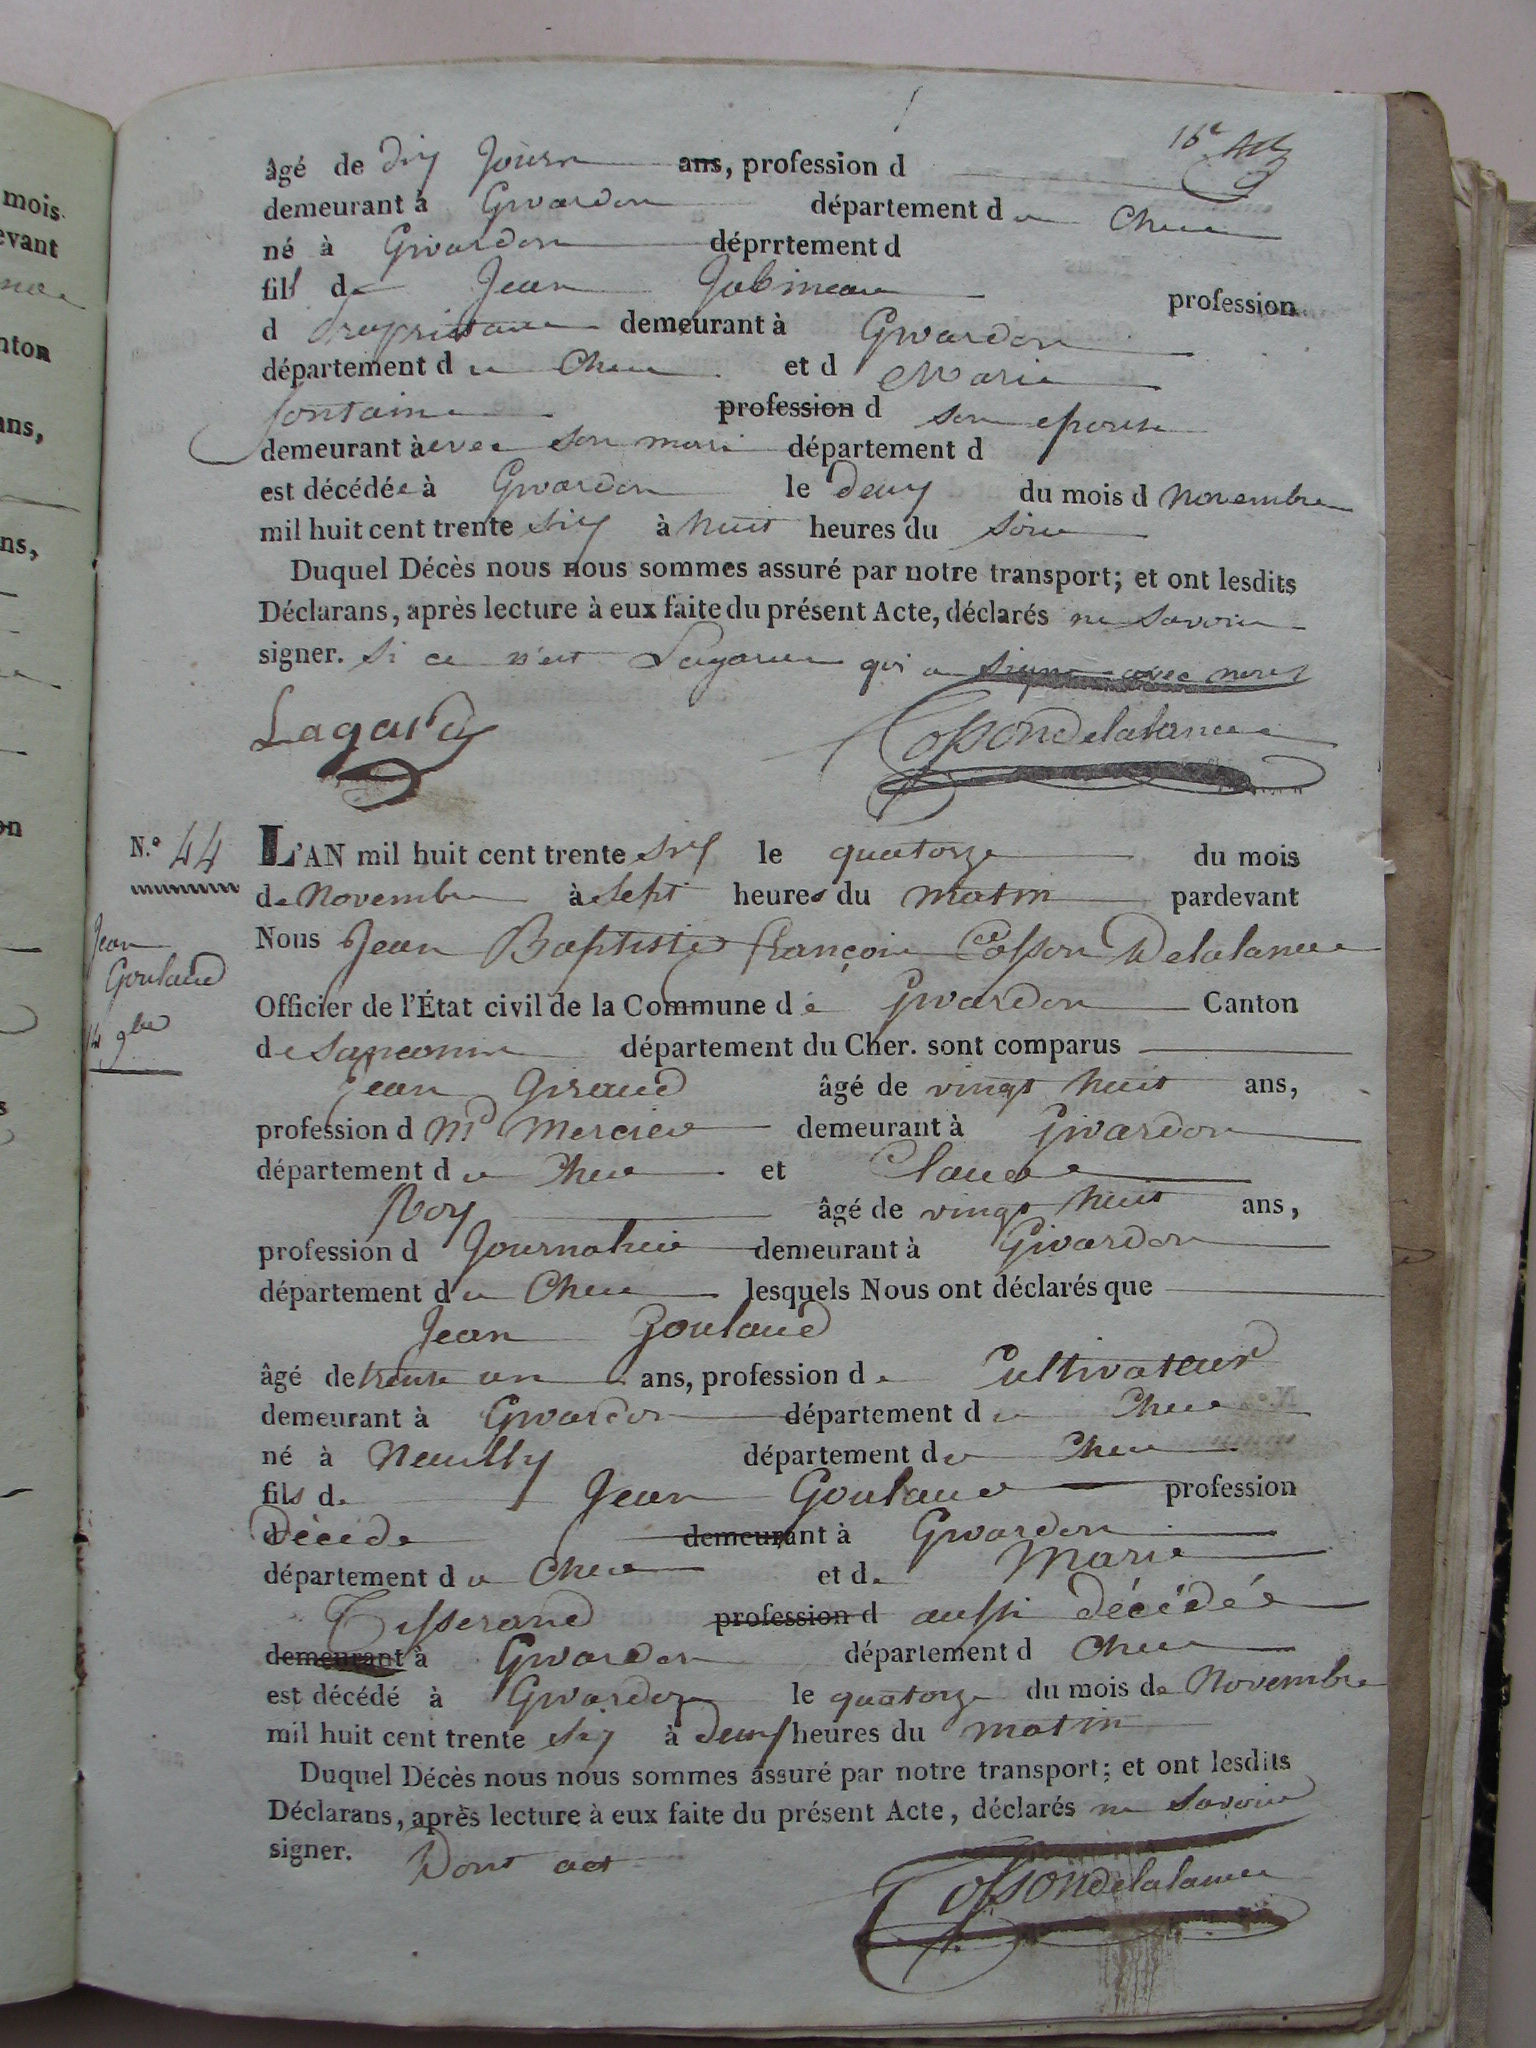 16e
âgé de dix Jours ans, profession d
demeurant à Givardon département du Cher
né à Givardon déprrtement d
fils de Jean Jobineau profession
d Propriétaire demeurant à Givardon
département du Cher et d Marie
fontaine profession d son epouse
demeurant à avec son mari département d
est décédée à Givardon le deux du mois d novembre
mil huit cent trente six à huit heures du soir
Duquel Décès nous nous sommes assuré par notre transport; et ont lesdits
Déclarans, après lecture à eux faite du présent Acte, déclarés ne savoir
signer. si ce n'est Lagarde qui a signé avec nous
Lagarde Cosson delalance
N.º 44 L'AN mil huit cent trente six le quatorze du mois
de Novembre à Sept heures du matin pardevant
Nous Jean Baptiste françois Cosson Delalance
Jean
Goulaud
14 9bre
Officier de l'État civil de la Commune de Givardon Canton
de Sancoins département du Cher. sont comparus
Jean Giraud âgé de vingt huit ans,
profession d Md Mercier demeurant à Givardon
département du Cher et Claude
Roy âgé de vingt huit ans,
profession d Journalier demeurant à Givardon
département du Cher lesquels Nous ont déclarés que
Jean Goulaud
âgé de trente un ans, profession de Cultivateur
demeurant à Givardon département du Cher
né à Neuilly département du Cher
fils de Jean Goulaud profession
décédé demeurant à Givardon
département du Cher et de Marie
Tisserand profession d aussi décédée
demeurant à Givardon département d Cher
est décédé à Givardon le quatorze du mois de Novembre
mil huit cent trente six à deux heures du matin
Duquel Décès nous nous sommes assuré par notre transport; et ont lesdits
Déclarans, après lecture à eux faite du présent Acte, déclarés ne savoir
signer. Dont act
Cosson delalance